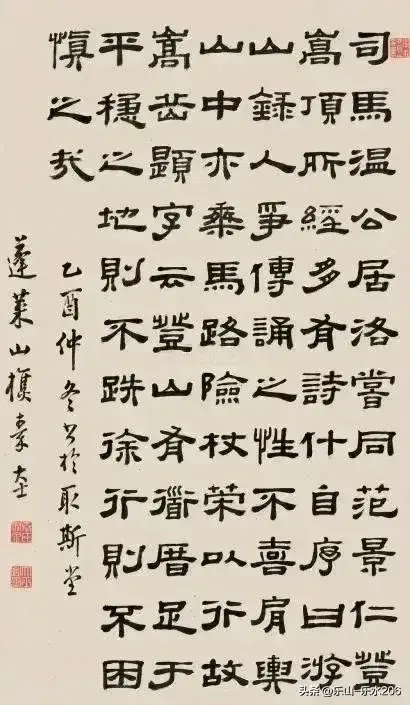 司馬温公居洛嘗同范景仁登
嵩頂所經多有詩什自序曰游
山錄人爭傳誦之性不喜肩輿
山中亦乘馬路險杖策以行故
嵩題字云登山有衟厝足于
平穩之地則不跌徐行則不困
慎之哉
乙酉仲冬书於取斯堂
蓬莱山樵
头条@乐山-乐水206